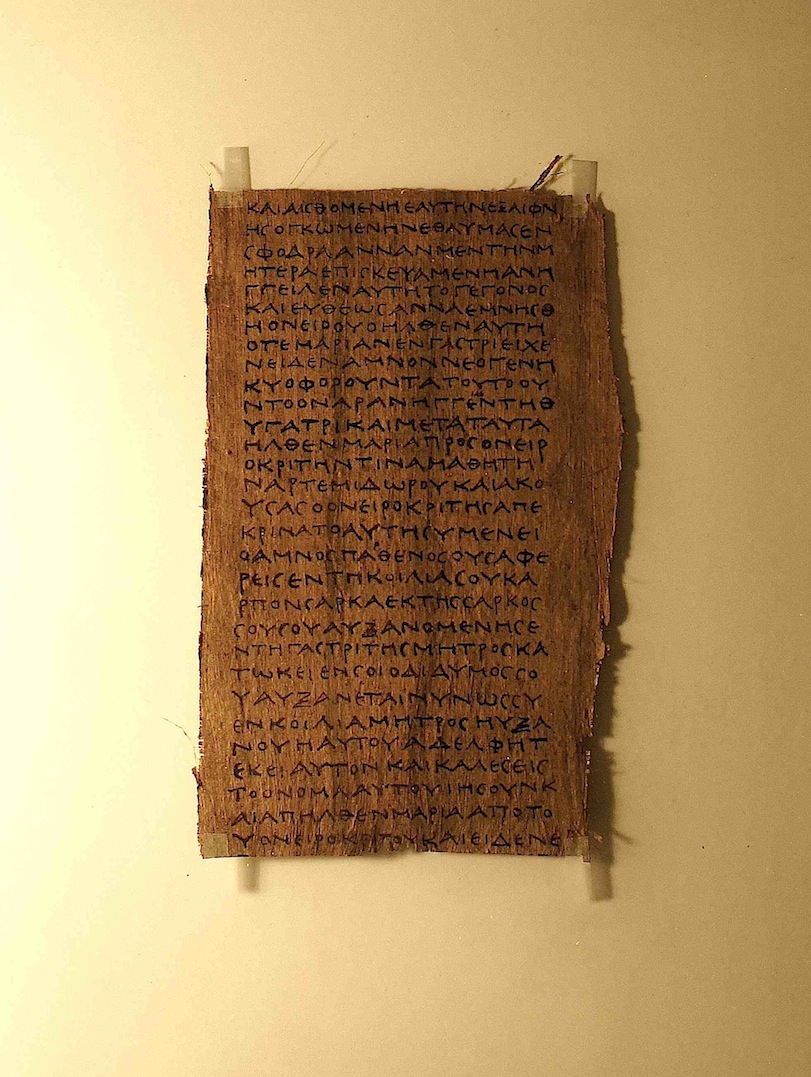 ΚΑΙΑΙϹΘΟΜΕΝΗΕΑΥΤΗΝΕΞΑΙΦΝ
ΗϹΟΓΚΩΜΕΝΗΝΕΘΑΥΜΑϹΕΝ
ϹΦΟΔΡΑΑΝΝΑΝΜΕΝΤΗΝΜ
ΗΤΕΡΑΕΠΙϹΚΕΨΑΜΕΝΗΑΝΗ
ΓΓΕΙΛΕΝΑΥΤΗΤΟΓΕΓΟΝΟϹ
ΚΑΙΕΥΘΕΩϹΑΝΝΑΕΜΝΗϹΘ
ΗΟΝΕΙΡΟΥΟΗΛΘΕΝΑΥΤΗ
ΟΤΕΜΑΡΙΑΝΕΝΓΑϹΤΡΙΕΙΧΕ
ΝΕΙΔΕΝΑΜΝΟΝΝΕΟΓΕΝΗ
ΚΥΟΦΟΡΟΥΝΤΑΤΟΥΤΟΟΥ
ΝΤΟΟΝΑΡΑΝΗΓΓΕΝΤΗΘ
ΥΓΑΤΡΙΚΑΙΜΕΤΑΤΑΥΤΑ
ΗΛΘΕΝΜΑΡΙΑΠΡΟϹΟΝΕΙΡ
ΟΚΡΙΤΗΝΤΙΝΑΜΑΘΗΤΗ
ΝΑΡΤΕΜΙΔΩΡΟΥΚΑΙΑΚΟ
ΥϹΑϹΟΟΝΕΙΡΟΚΡΙΤΗϹΑΠΕ
ΚΡΙΝΑΤΟΑΥΤΗϹΥΜΕΝΕΙ
ΟΑΜΝΟϹΠΑΘΕΝΟϹΟΥϹΑΦΕ
ΡΕΙϹΕΝΤΗΚΟΙΛΙΑϹΟΥΚΑ
ΡΠΟΝϹΑΡΚΑΕΚΤΗϹϹΑΡΚΟϹ
ϹΟΥϹΟΥΑΥΞΑΝΟΜΕΝΗϹΕ
ΝΤΗΓΑϹΤΡΙΤΗϹΜΗΤΡΟϹΚΑ
ΤΩΚΕΙΕΝϹΟΙΟΔΙΔΥΜΟϹϹΟ
ΥΑΥΞΑΝΕΤΑΙΝΥΝΩϹϹΥ
ΕΝΚΟΙΛΙΑΜΗΤΡΟϹΗΥΞΑ
ΝΟΥΗΑΥΤΟΥΑΔΕΛΦΗΤ
ΕΚΕΙΑΥΤΟΝΚΑΙΚΑΛΕϹΕΙϹ
ΤΟΟΝΟΜΑΑΥΤΟΥΙΗϹΟΥΝΚ
ΑΙΑΠΗΛΘΕΝΜΑΡΙΑΑΠΟΤΟ
ΥΟΝΕΙΡΟΚΡΙΤΟΥΚΑΙΕΙΔΕΝΕ